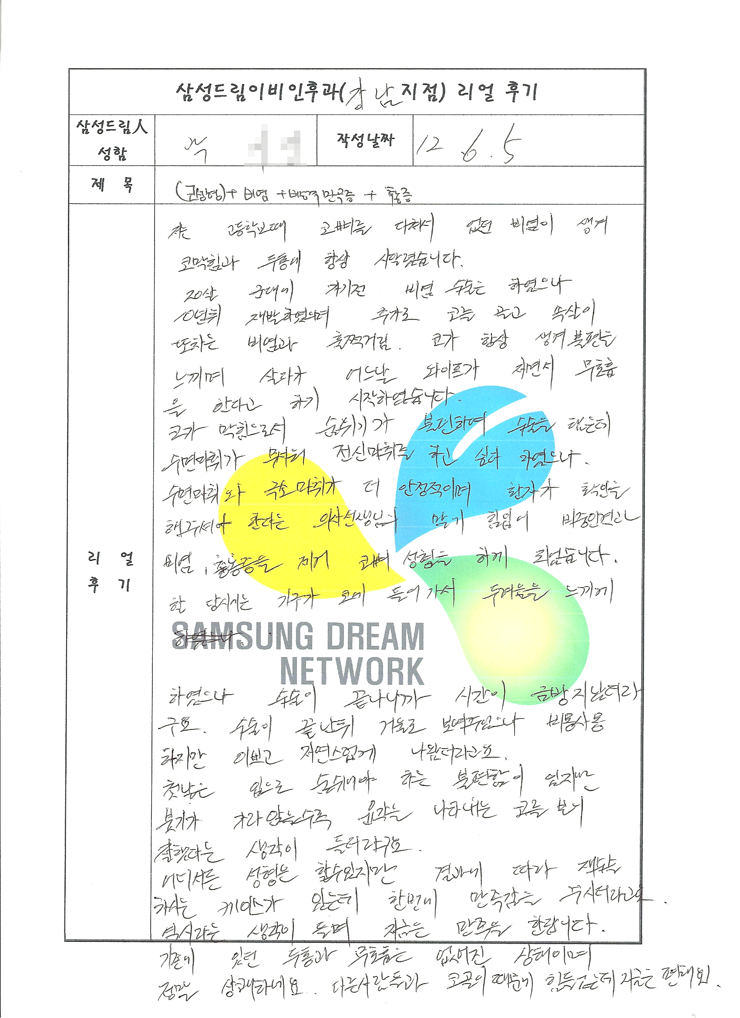 삼성드림이비인후과(강남지점) 리얼 후기
삼성드림人 성함
박
작성날짜
12. 6. 5
제 목
+ 비염 + 비중격만곡증 +
리얼 후기
저는 고등학교때 코뼈를 다쳐서 없던 비염이 생겨
코막힘과 두통에 항상 시달렸습니다.
20살 군대에 가기전 비염 수술은 하였으나
10년뒤 재발하였으며 추가로 코를 골고 속살이
또차는 비염과 훌쩍거림. 코가 항상 생겨 불편을
느끼며 살다가 어느날 와이프가 자면서 무호흡
을 한다고 하기 시작하였습니다.
코가 막힘으로서 숨쉬기가 불편하며 수술을
수면마취가 무서워 전신마취를 하고 싶다 하였으나.
수면마취와 국소마취가 더 안정적이며 환자가 확인을
해주셔야 한다는 의사선생님의 말에 힘입어
비염, 제거 코뼈 성형을 하게 되었습니다.
할 당시에는 기구가 코에 들어가서 두려움을 느끼게
SAMSUNG DREAM
NETWORK
하였으나 수술이 끝나니까 시간이 금방 지났더라
구요. 수술이 끝난뒤 거울로 보여주었으나
하지만 이쁘고 자연스럽게 나왔더라구요.
첫날은 입으로 숨쉬어야 하는 불편함이 있지만
붓기가 가라앉을수록 윤곽을 나타내는 코를 보니
잘했다는 생각이 들더라구요.
어디서든 성형은 할수있지만 결과에 따라 재수술
하시는 케이스가 있는데 한번에 만족감을 주시더라구요
역시라는 생각이 들며 지금은 만족을 합니다.
기존에 있던 두통과 무호흡은 없어진 상태이며
정말 상쾌하네요. 다른사람들과 코골이 때문에 힘들었는데 지금은 편해요.